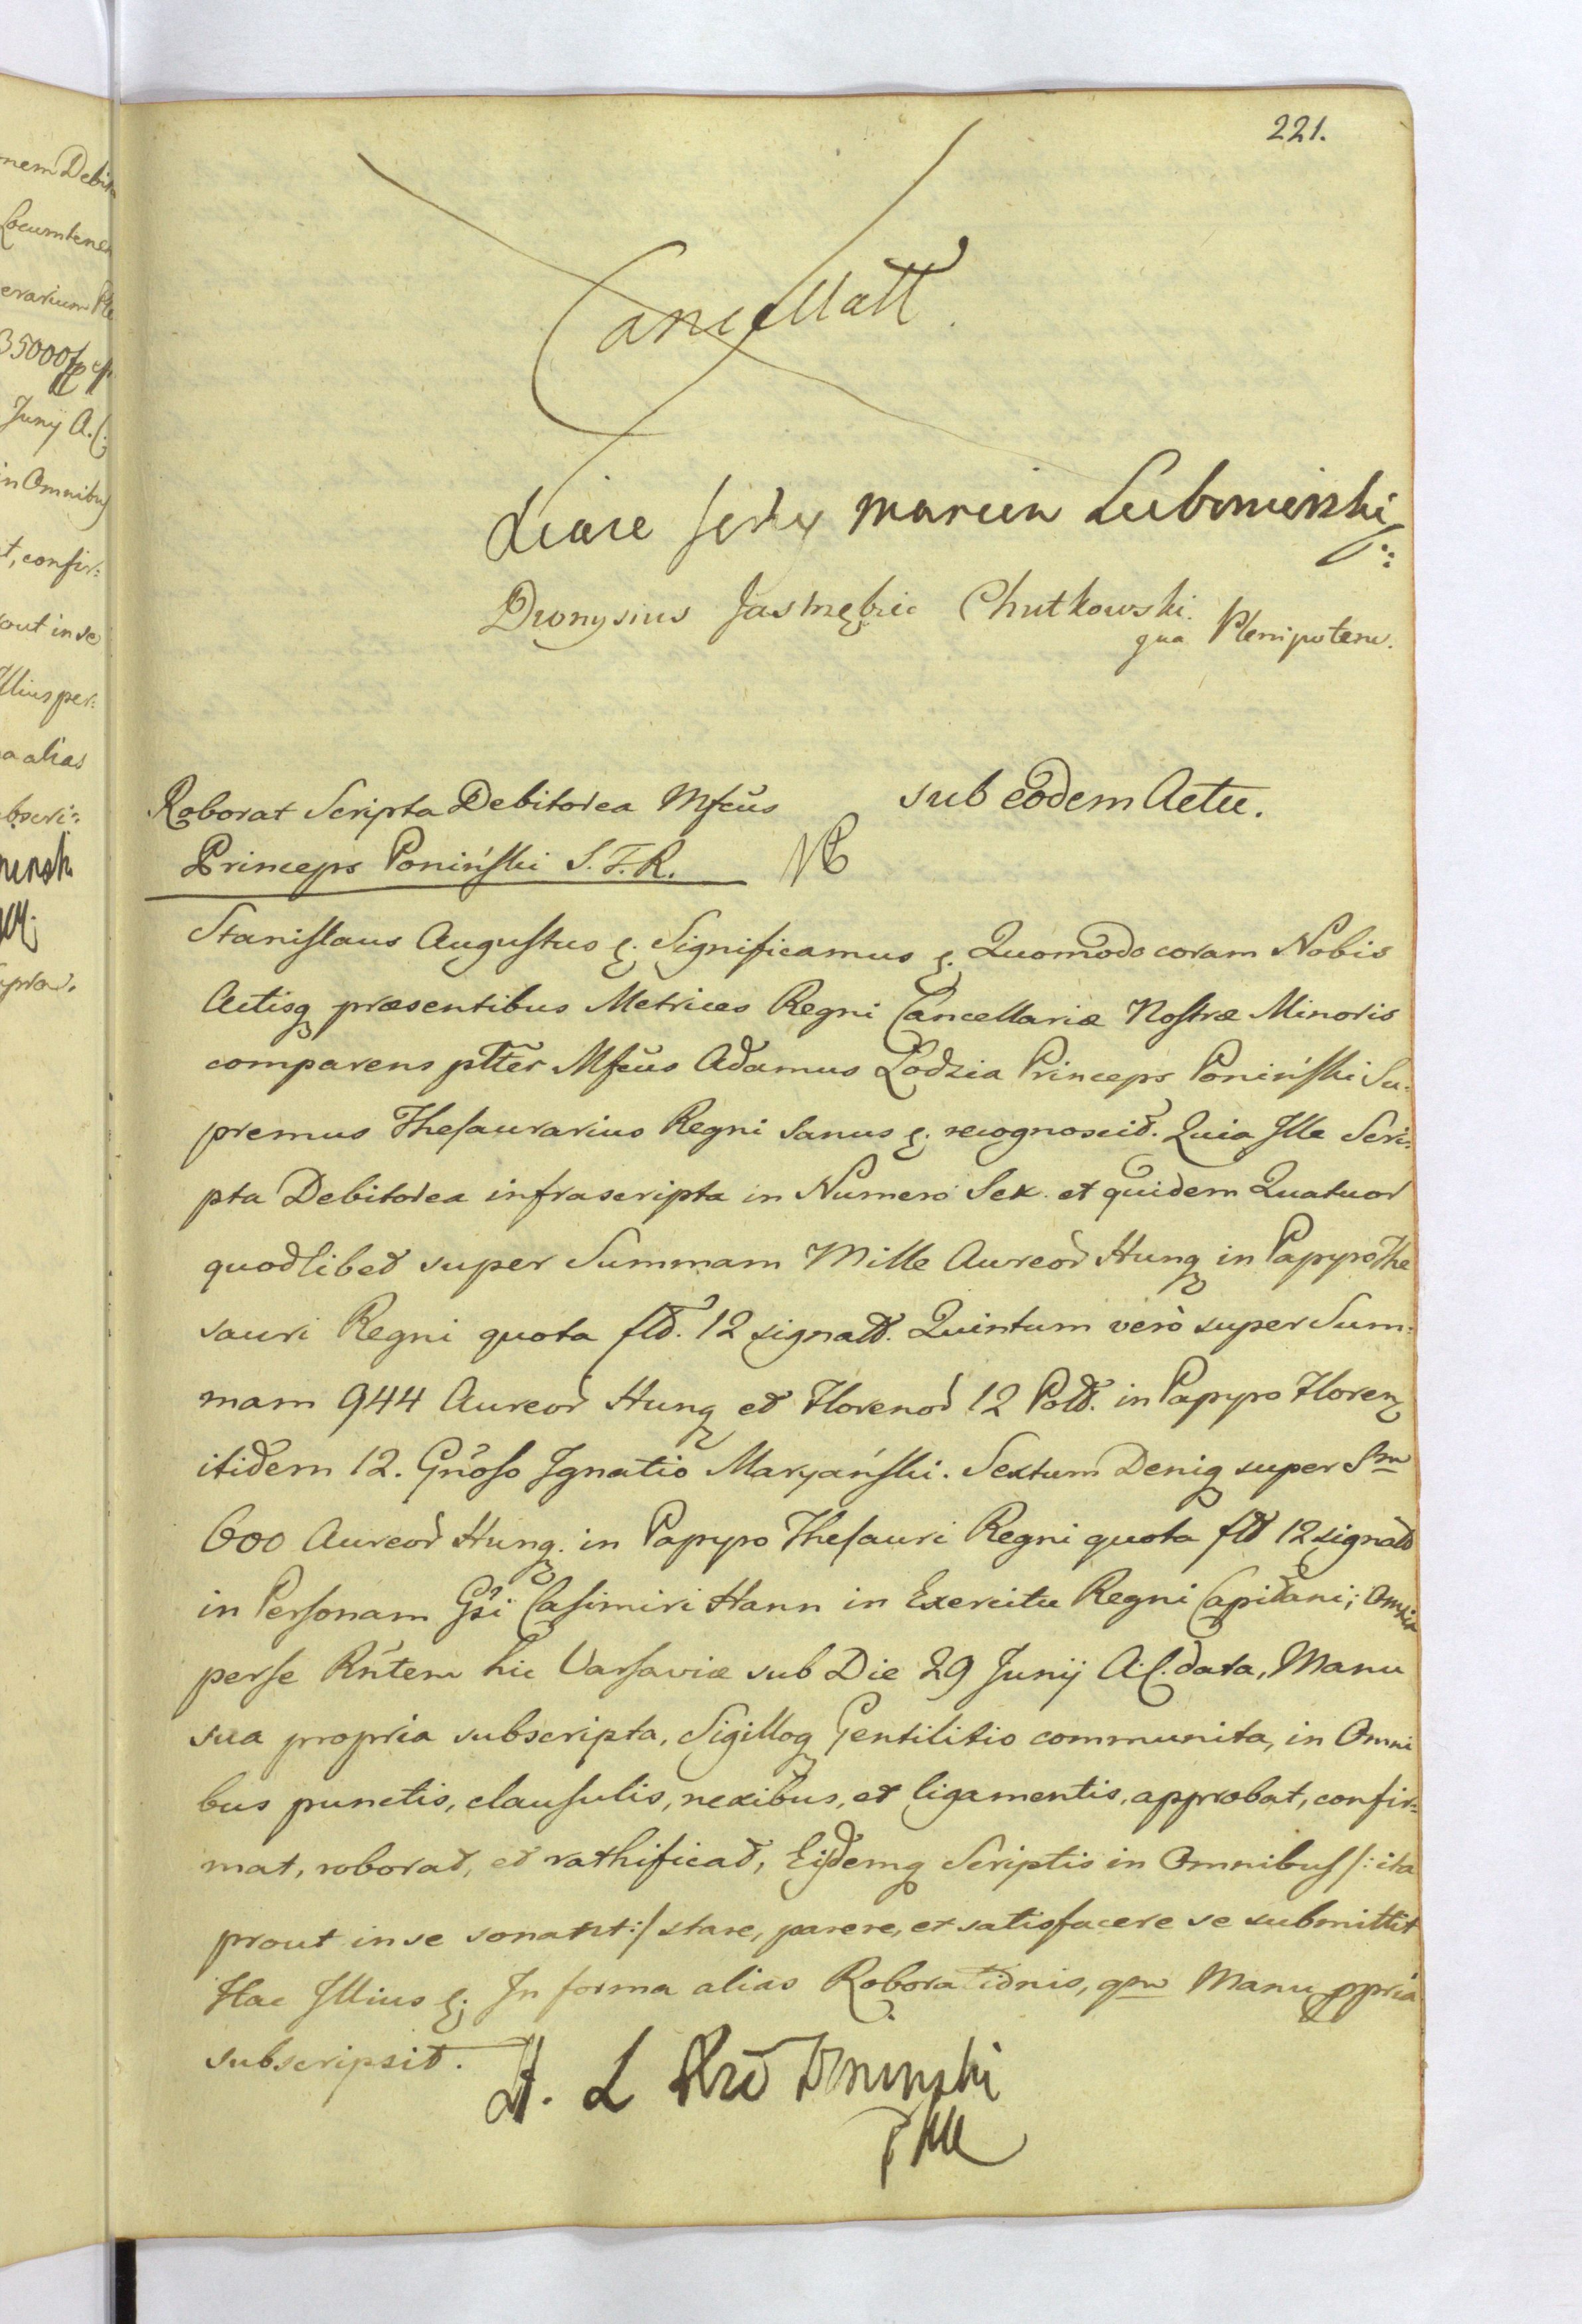 221.
Cancellatt.
Marcin Lubomirski
Dionysius Jastrzębiec Chutkowski
qua Plenipotens.
sub eodem Actu.
Roborat Scripta Debitorea Mfcus
Princeps Poniński S.T.R.
Stanislaus Augustus Significamus Quomodo coram Nobis
Actisq præsentibus Metrices Regni Cancellariæ Nostræ Minoris
comparens plter Mfcus Adamus Lodzia Princeps Poniński Su-
premus Thesaurarius Regni sanus recognoscit. Quia Ille Scri-
pta Debitorea infrascripta in Numero Sex et quidem Quatuor
quodlibet super Summam Mille Aureor Hung in Papyro The
sauri Regni quota fld. 12 signatt. Quintum verò super Sum-
mam 944 Aureor Hung et Florenor 12 Poltt. in Papyro Floren
itidem 12. Gnoso Ignatio Maryański. Sextum Deniq super Sm
600 Aureor Hung. in Papyro Thesauri Regni quota fld 12 signatt
in Personam Gsi Casimiri Hann in Exercitu Regni Capitani; Omnia
perse Rntem hic Varsaviæ sub Die 29 Junij A.C. data, Manu
sua propria subscripta, Sigilloq Gentilitio communita, in Omni
bus punctis, clausulis, nexibus, et ligamentis, approbat, confir-
mat, roborat, et rathificat, Eisdemq Scriptis in Omnibus /: ita
prout in se sonant :/ stare, parere, et satisfacere se submittit
Hac Illius In forma alias Roborationis, qm Manu ppria
subscripsit.
A. L Poninski